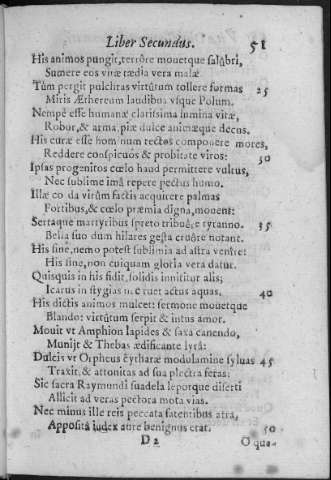 Liber Secundus. 51
His animos pungit, terrôre mouetque salûbri,
Sumere eos vitæ tædia vera malæ
Tùm pergit pulchras virtûtum tollere formas 25
Miris Æthereum laudibus vsque Polum.
Nempè esse humanæ clarissima lumina vitæ,
Robor, & arma, piæ dulce animæque decus.
His curæ esse hominum rectos componere mores,
Reddere conspicuos & probitate viros: 30
Ipsas progenitos cœlo haud permittere vultus,
Nec sublime imâ repere pectus humo.
Illæ co da virûm factis acquirere palmas
Fortibus, & cœlo præmia digna, mouent:
Sertaque martyribus spreto tribuêre tyranno. 35
Bella suo dum hilares gesta cruôre notant.
His sine, nemo potest sublimia ad astra venire:
His sine, non cuiquam gloria vera datur.
Quisquis in his fidit, solidis innititur alis;
Icarus in stygias ne ruet actus aquas. 40
His dictis animos mulcet: sermone mouetque
Blando: virtûtum serpit & intus amor.
Mouit vt Amphion lapides & saxa canendo,
Munijt & Thebas ædificante lyrâ:
Dulcis vt Orpheus cytharæ modulamine syluas 45
Traxit, & attonitas ad sua plectra feras:
Sic sacra Raymundi suadela leporque diserti
Allicit ad veras pectora mota vias.
Nec minus ille reis peccata fatentibus atra,
Apposita iudex aure benignus erat. 50
D 2 O quo-